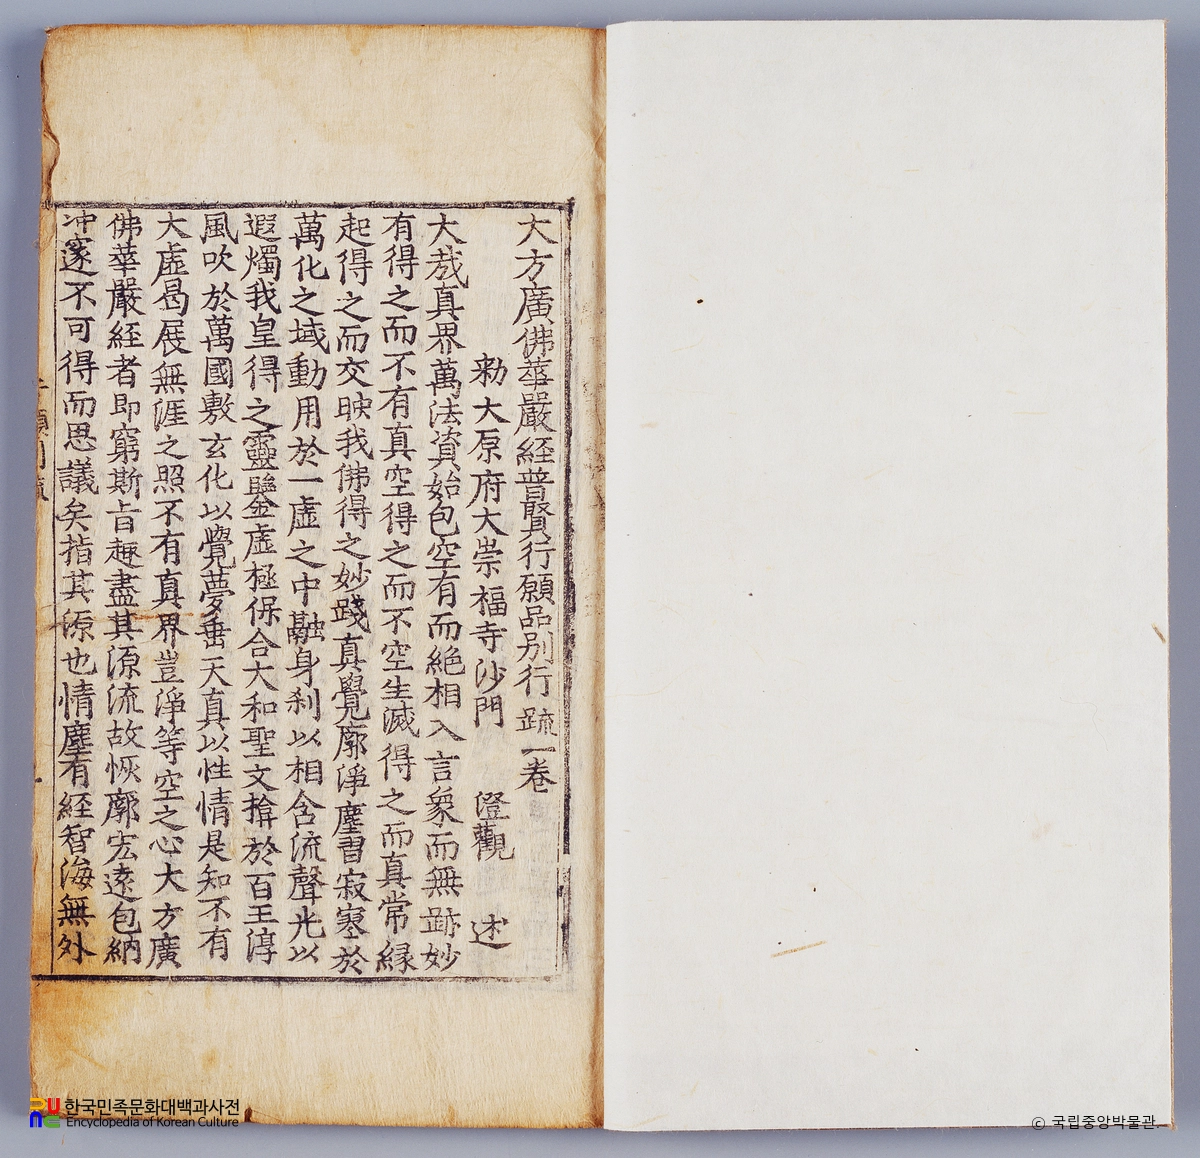 大方廣佛華嚴經普賢行願品別行疏一卷
勑大原府大崇福寺沙門 澄觀 述
大哉真界萬法資始包空有而絶相入言象而無跡妙
有得之而不有真空得之而不空生滅得之而真常縁
起得之而交映我佛得之妙踐真覺廓淨塵習寂寥於
萬化之域動用於一虛之中融身刹以相含流聲光以
遐燭我皇得之靈鑒虛極保合大和聖文掩於百王淳
風吹於萬國敷玄化以覺夢垂天真以性情是知不有
大虛曷展無涯之照不有真界豈淨等空之心大方廣
佛華嚴経者即窮斯旨趣盡其源流故恢廓宏逺包納
冲邃不可得而思議矣指其源也情塵有経智海無外
한국민족문화대백과사전
Encyclopedia of Korean Culture
© 국립중앙박물관